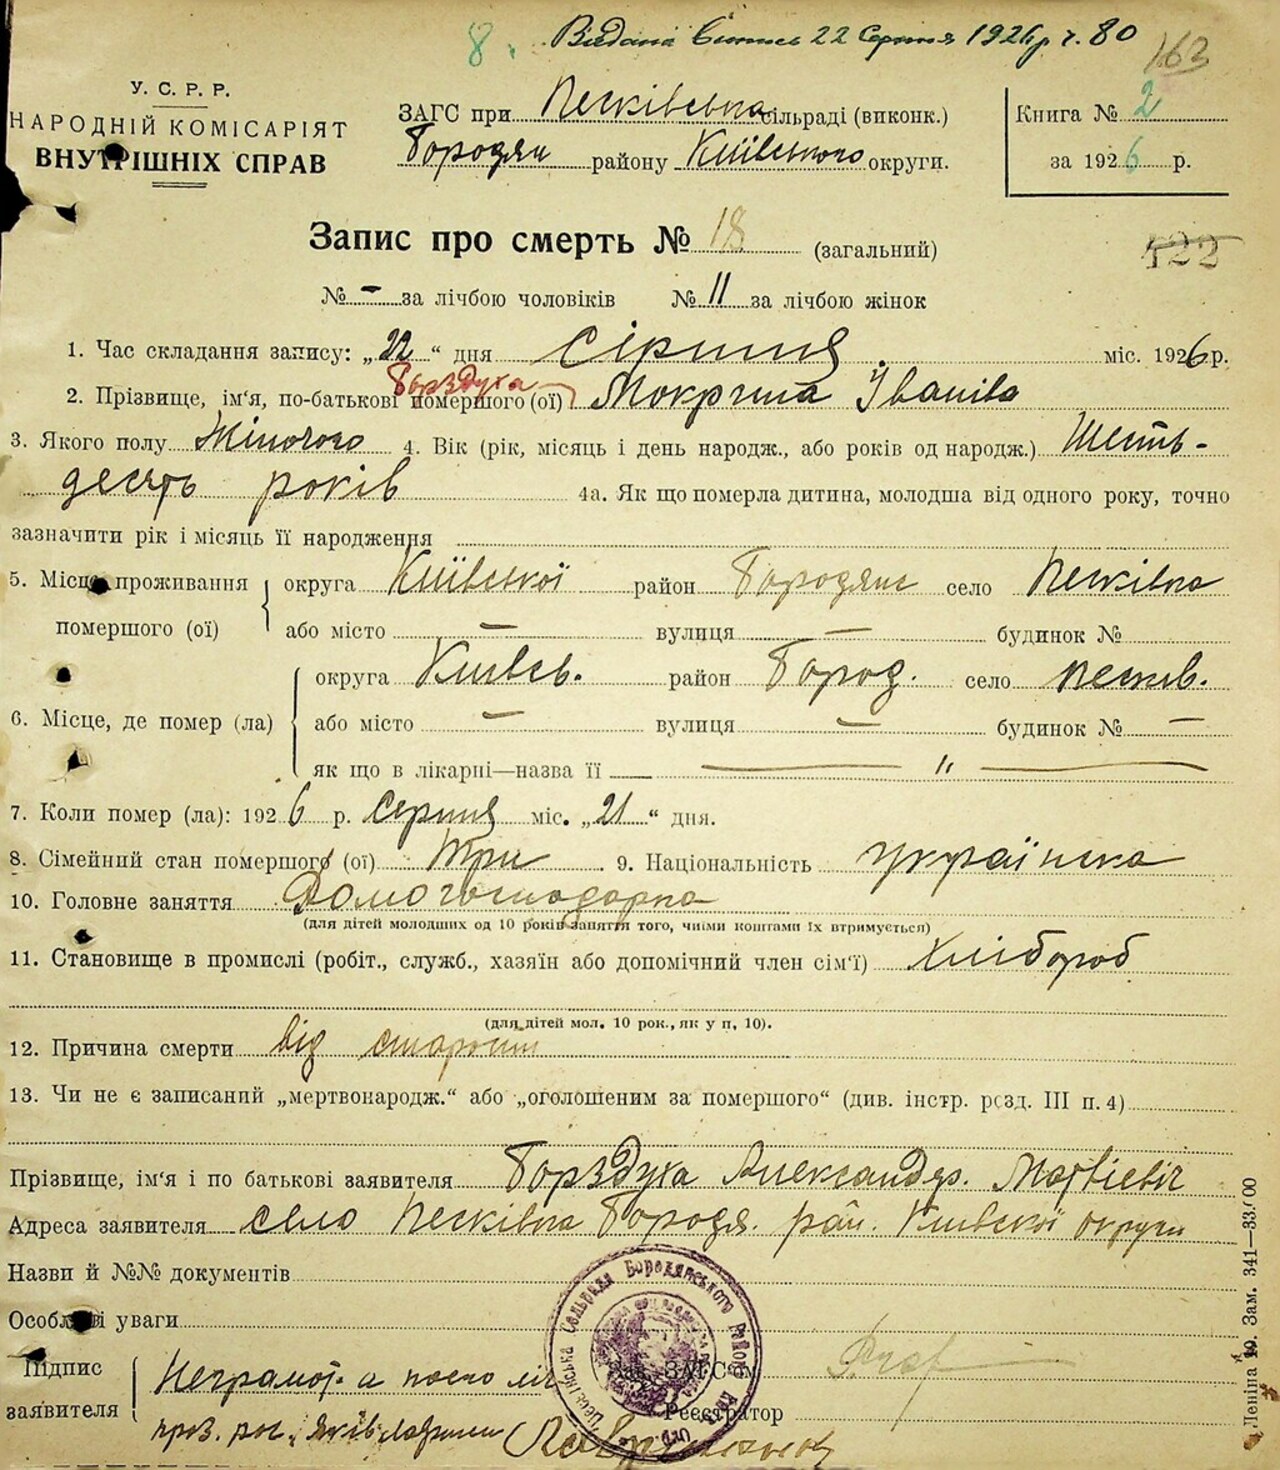 8. Видана витись 22 Серпня 1926 р ч. 80
163
У. С. Р. Р.
НАРОДНІЙ КОМІСАРІЯТ
ВНУТРІШНІХ СПРАВ
ЗАГС при Песківська сільраді (виконк.)
Бородян району Київського округи.
Книга № 2
за 1926 р.
Запис про смерть № 18 (загальний)
122
№ – за лічбою чоловіків № 11 за лічбою жінок
1. Час складання запису: „22“ дня Сірпня міс. 1926 р.
Борздуха
2. Прізвище, ім‘я, по-батькові помершого (ої) Мокрина Іванівa
3. Якого полу Жіночого 4. Вік (рік, місяць і день народж., або років од народж.) Шесть-
десять років 4а. Як що померла дитина, молодша від одного року, точно
зазначити рік і місяць її народження
5. Місце проживання помершого (ої) округа Київської район Бородянс село Песківка
або місто — вулиця — будинок №
6. Місце, де помер (ла) округа Київсь. район Город. село песків.
або місто — вулиця — будинок № —
як що в лікарні—назва її — " —
7. Коли помер (ла): 1926 р. серпня міс. „21“ дня.
8. Сімейний стан помершого (ої) Три 9. Національність українска
10. Головне заняття Домогосподарка
(для дітей молодших од 10 років заняття того, чиїми коштами їх втримується)
11. Становище в промислі (робіт., служб., хазяїн або допомічний член сім‘ї) хлібороб
(для дітей мол. 10 рок., як у п, 10).
12. Причина смерти від старости
13. Чи не є записаний „мертвонародж.“ або „оголошеним за помершого“ (див. інстр. розд. III п. 4)
Прізвище, ім‘я і по батькові заявителя Борздуха Александр. Матвієвіч
Адреса заявителя село Песківка Бородя. рай. Киівскої округи
Назви й №№ документів
Особливі уваги
Підпис заявителя Неграмот. а посо
Яків
Сельрада Бородянського Району
Зав. ЗАГС‘ом
Реєстратор
Леніна 19. Зам. 341—33.000